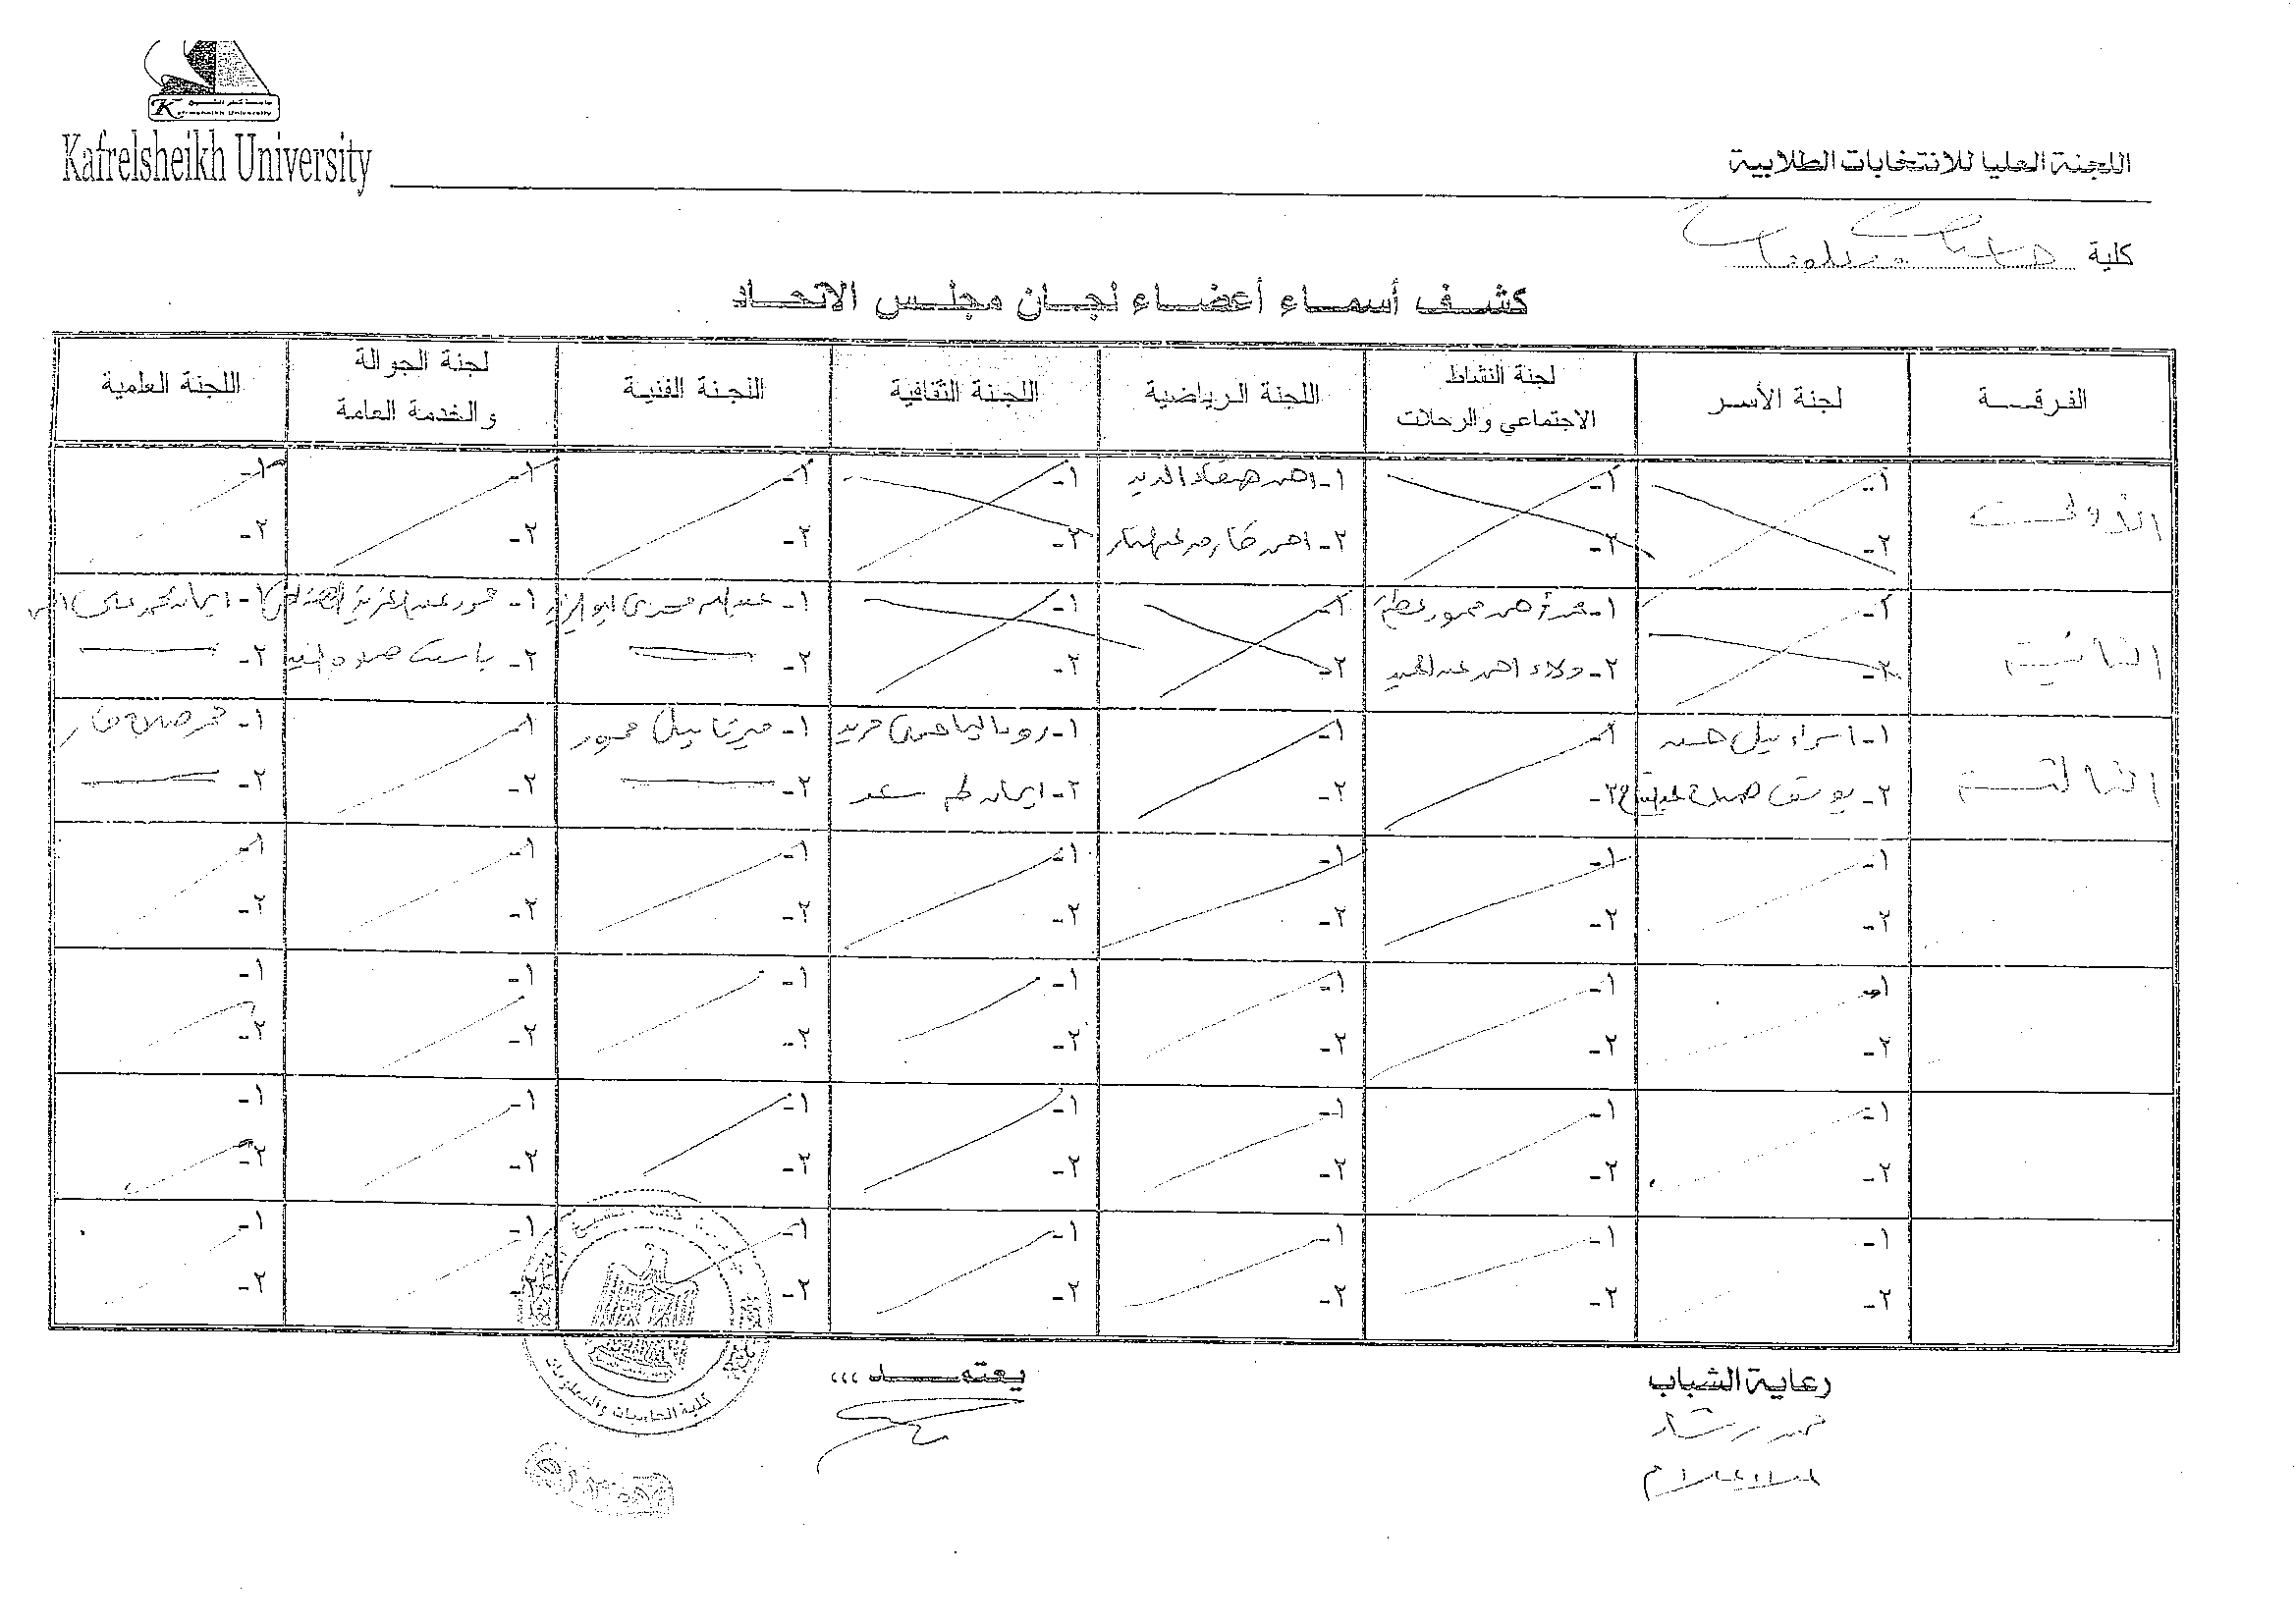 جامعة كفر الشيخ
Kafrelsheikh University
Kafrelsheikh University
اللجنة العليا للانتخابات الطلابية
كلية حاسبات ومعلومات
كشف أسماء أعضاء لجان مجلس الاتحاد
الفرقة لجنة الأسر لجنة النشاط الاجتماعي والرحلات اللجنة الرياضية اللجنة الثقافية اللجنة الفنية لجنة الجوالة والخدمة العامة اللجنة العلمية
الأولى ١- ١- ١- احمد ١- ١- ١- ١-
٢- ٢- ٢- احمد طارق ٢- ٢- ٢- ٢-
الثانية ١- ١- محمد احمد محمود ١- ١- ١- عبدالله مجدى ابو اليزيد ١- محمود عبدالعزيز ١- ايمان محمد على
٢- ٢- ولاء احمد عبدالحميد ٢- ٢- ٢- ٢- صلاح السيد ٢-
الثالثة ١- اسراء نبيل حسن ١- ١- ١- حمدى فريد ١- ميرنا نبيل محمود ١- صلاح
٢- يوسف صلاح عبدالفتاح ٢- ٢- ٢- ايمان طه سعد ٢- ٢- ٢-
١- ١- ١- ١- ١- ١- ١-
٢- ٢- ٢- ٢- ٢- ٢- ٢-
١- ١- ١- ١- ١- ١- ١-
٢- ٢- ٢- ٢- ٢- ٢- ٢-
١- ١- ١- ١- ١- ١- ١-
٢- ٢- ٢- ٢- ٢- ٢- ٢-
١- ١- ١- ١- ١- ١- ١-
٢- ٢- ٢- ٢- ٢- ٢- ٢-
رعاية الشباب
محمد رشاد
يعتمد ,,,
كلية الحاسبات والمعلومات